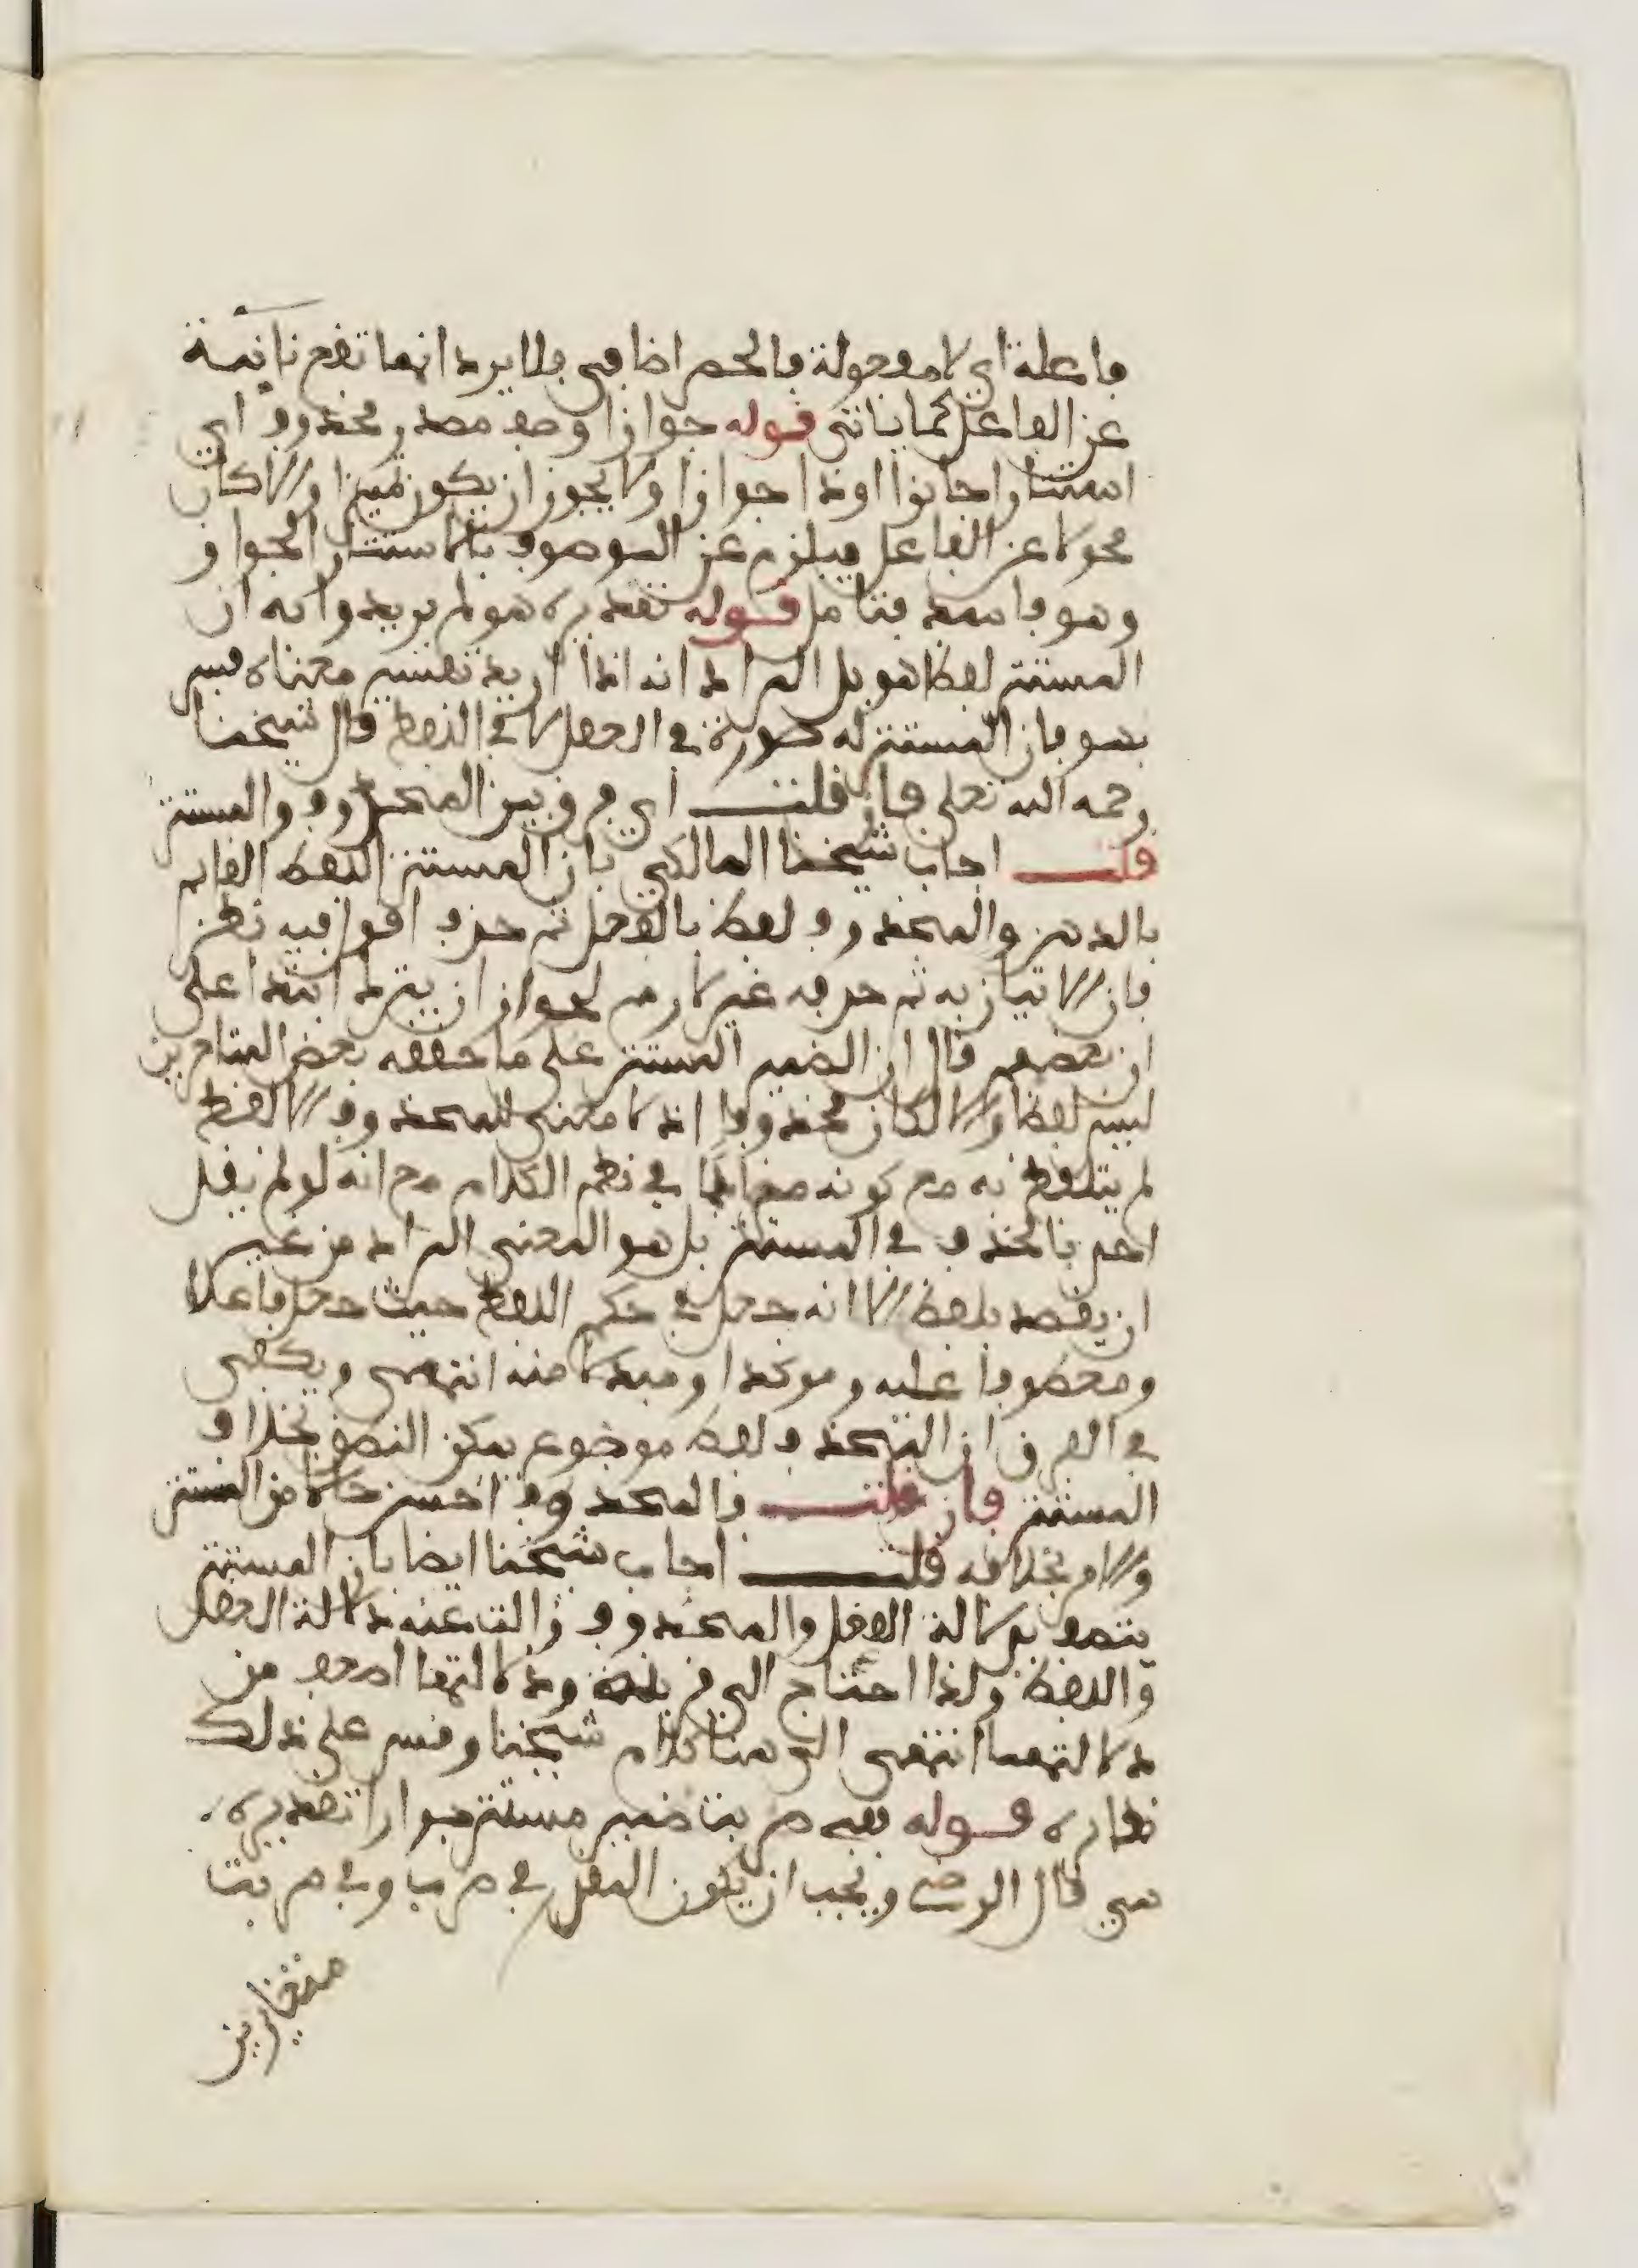 فاعلة اي لا مفعولة فالحصر اضافي فلا يرد انها تقع نائبة
عن الفاعل كما ياتي قوله جوازا وصف مصدر محذوف اي
استتارا جائزا او ذا جوازا ولا يجوز ان يكون تمييزا والا كان
محولا عن الفاعل فيلزم عن الموصوف بالاستتار الجواز
وهو فاسد فتامل قوله تقديره هو لم يريدوا به ان
المستتر لفظ هو بل المراد انه اذا اريد تفسير معناه فسر
بهو فان المستتر له صورة في العقل لا في اللفظ قال شيخنا
رحمه الله تعلى فان قلت اي فرق بين المحذوف والمستتر
قلت اجاب شيخنا المالكي بان المستتر اللفظ القايم
بالذهن والمحذوف لفظ بالفعل ثم حذف اقول فيه نظر
فان الاتيان به ثم حذفه غير لازم لجواز ان يترك ابتدا على
ان بعضهم قال ان الضمير المستتر على ما حققه بعض المتاخرين
ليس لفظا والا لكان محذوفا اذ لا معنى للمحذوف الا لفظ
لم يتلفظ به مع كونه في نظم الكلام مع انه لو لم يقل
احد بالحذف في المستتر بل هو المعنى المراد من غير
ان يقصد بلفظ الا انه جعل في حكم اللفظ حيث جعل فاعلا
ومعطوفا عليه وموكدا ومبدلا منه انتهى ويكفي
في الفرق ان المحذوف لفظ موضوع يمكن النطق بخلاف
المستتر فان قلت فالمحذوف احسن حالا من المستتر
والامر بخلافه قلت اجاب شيخنا ايضا بان المستتر
يتصف بدلالة العقل والمحذوف زالت عنه دلالة العقل
واللفظ ولذا احتاج الى قرينة ودلالتها اضعف من
دلالتهما انتهى الى هنا كلام شيخنا وقس على ذلك
نظايره قوله ففي ضربت ضمير مستتر جوازا تقديره
هي قال الرضي ويجب ان يكون المقدر في ضرب وفي ضربت
متغايرين